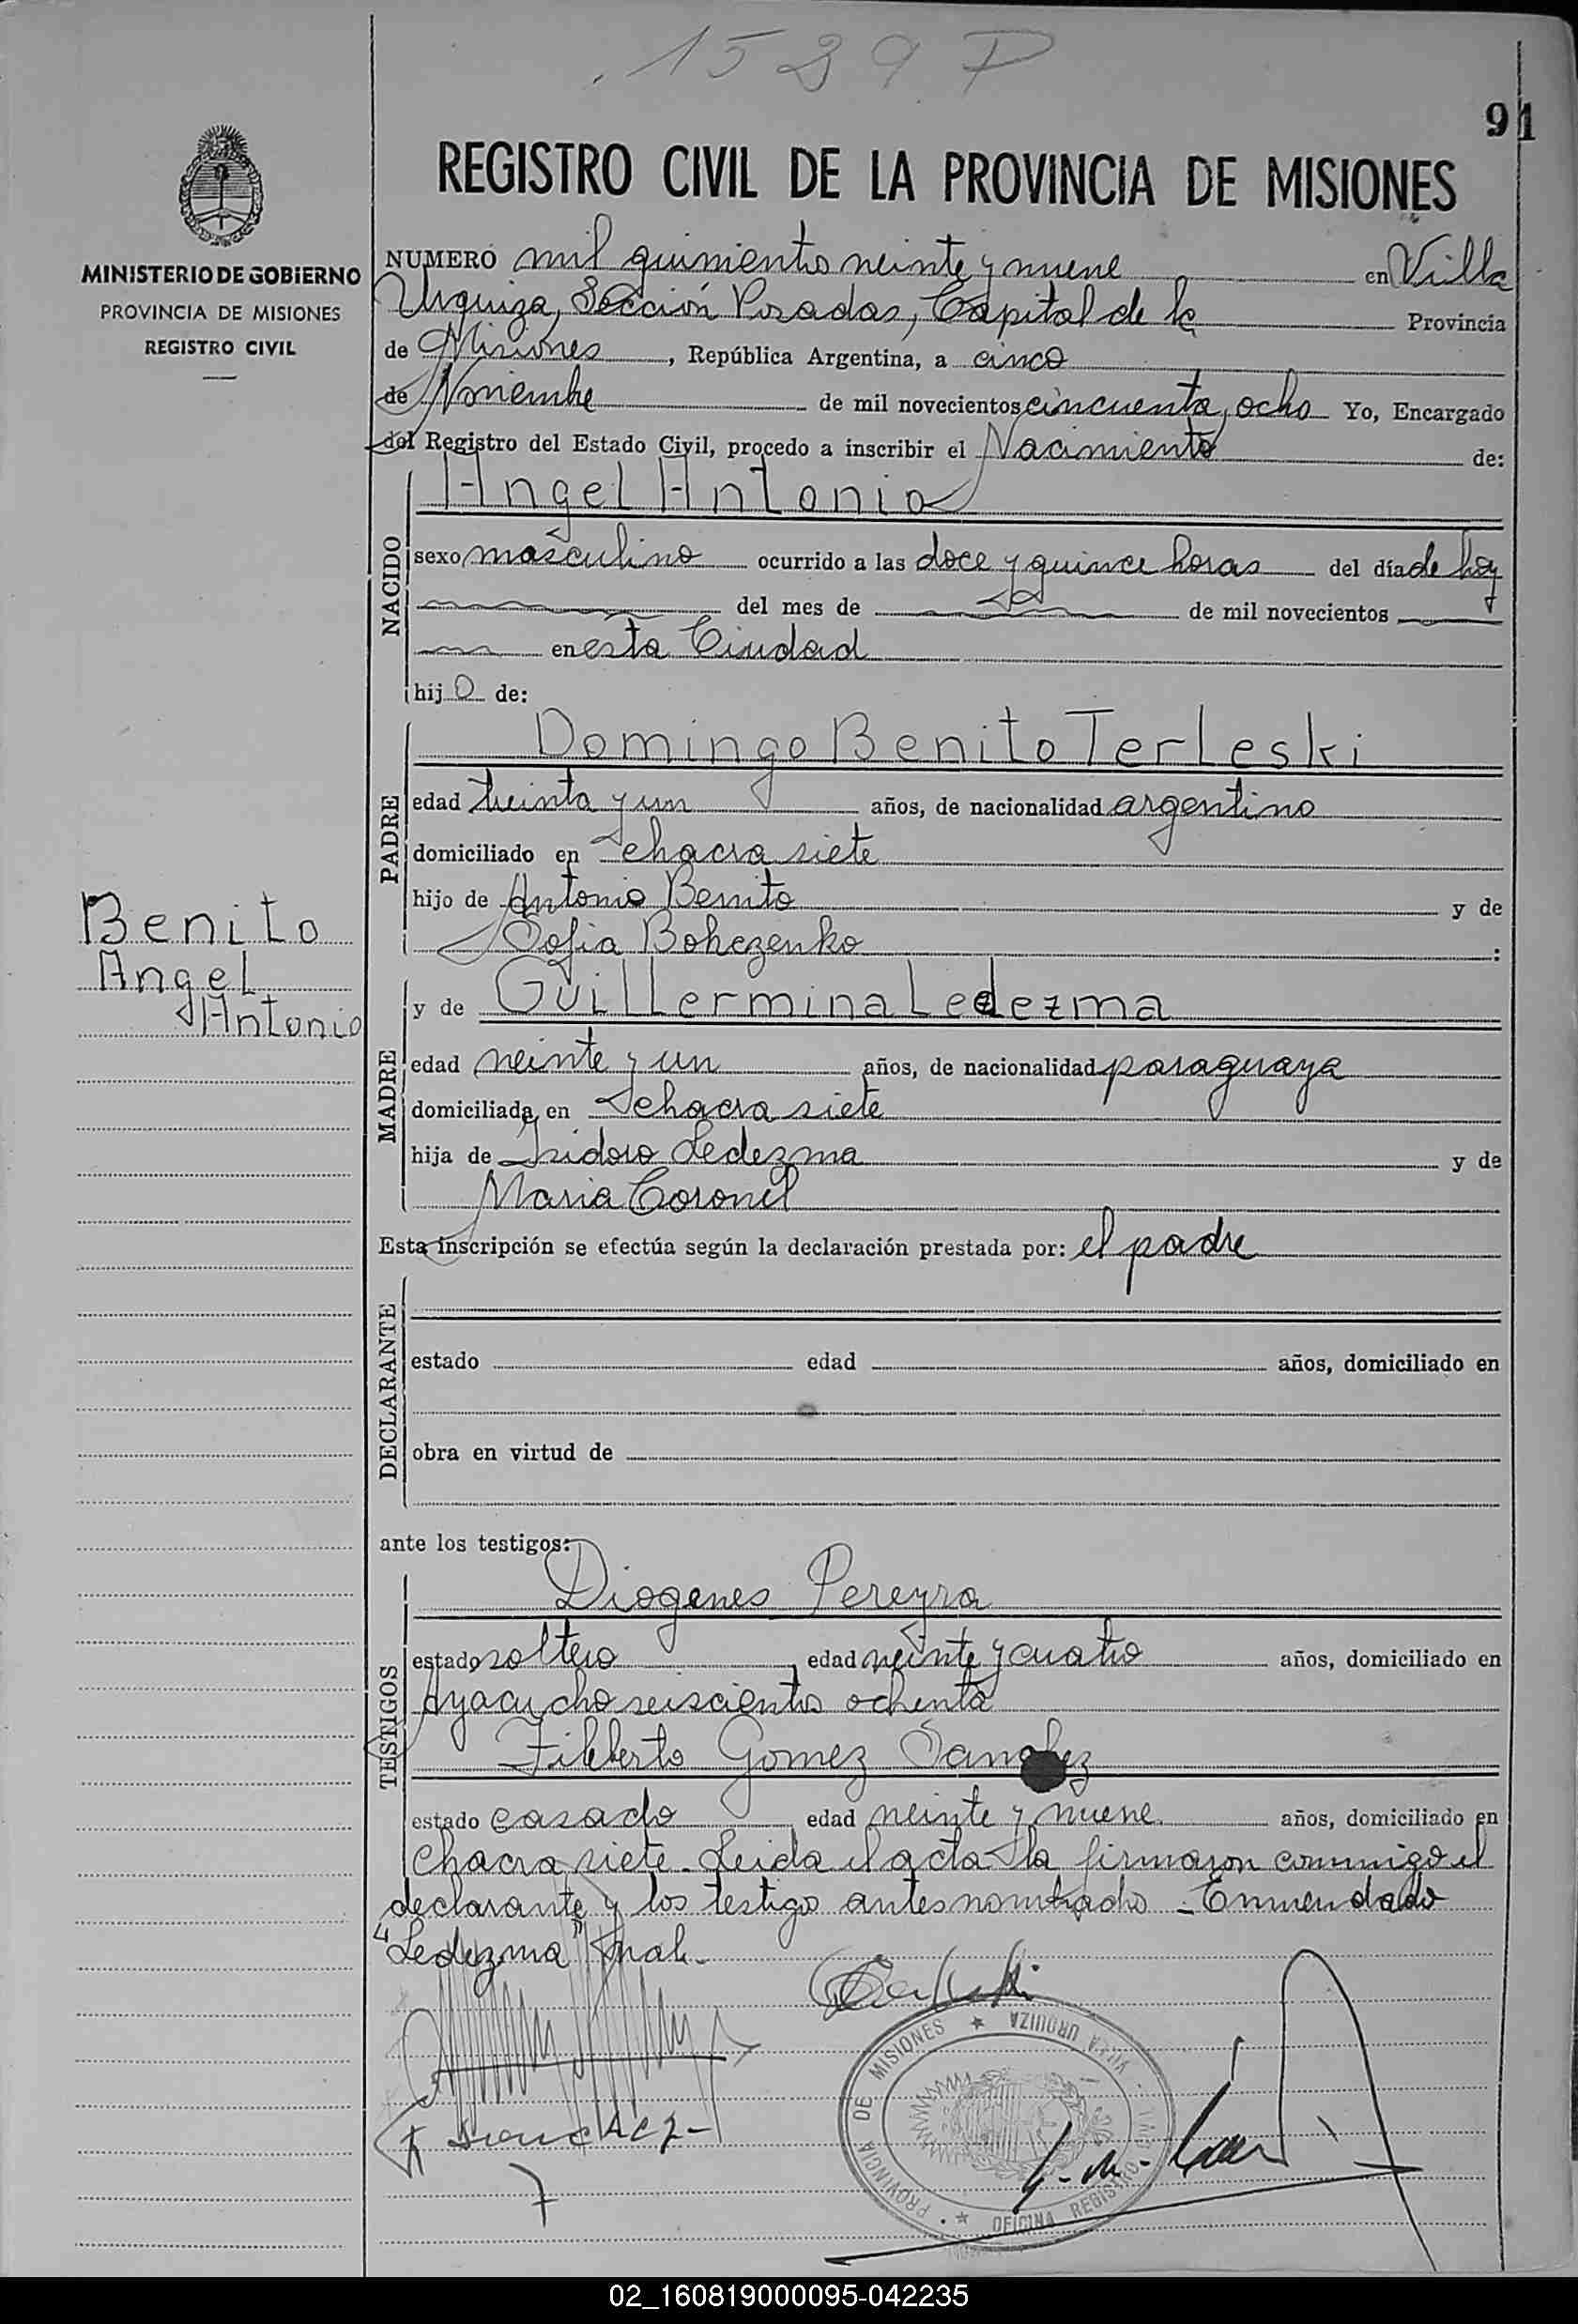 1529 P
91
REGISTRO CIVIL DE LA PROVINCIA DE MISIONES
MINISTERIO DE GOBIERNO
PROVINCIA DE MISIONES
REGISTRO CIVIL
NUMERO mil quinientos veinte y nueve en Villa
Urquiza, Sección Posadas, Capital de la Provincia
de Misiones, República Argentina, a cinco
de Noviembre de mil novecientos cincuenta y ocho Yo, Encargado
del Registro del Estado Civil, procedo a inscribir el Nacimiento de:
NACIDO
Angel Antonio
sexo masculino ocurrido a las doce y quince horas del día de hoy
del mes de de mil novecientos
en esta Ciudad
hijo de:
PADRE
Domingo Benito Terleski
edad treinta y un años, de nacionalidad argentino
domiciliado en chacra siete
hijo de Antonio Benito y de
Sofia Bohezenko :
Benito
Angel
Antonio
MADRE
y de Guillermina Ledezma
edad veinte y un años, de nacionalidad paraguaya
domiciliada en chacra siete
hija de Isidoro Ledezma y de
Maria Coronel
Esta inscripción se efectúa según la declaración prestada por: el padre
DECLARANTE
estado edad años, domiciliado en
obra en virtud de
ante los testigos:
TESTIGOS
Diogenes Pereyra
estado soltero edad veinte y cuatro años, domiciliado en
Ayacucho seiscientos ochenta
Filiberto Gomez Sanchez
estado casado edad veinte y nueve años, domiciliado en
chacra siete. Leida el acta la firmaron conmigo el
declarante y los testigo antes nombrado - Enmendado
"Ledezma" Vale.
Terleski
F Sanchez
PROVINCIA DE MISIONES ★ VILLA URQUIZA
★ OFICINA REGISTRO CIVIL
02_160819000095-042235